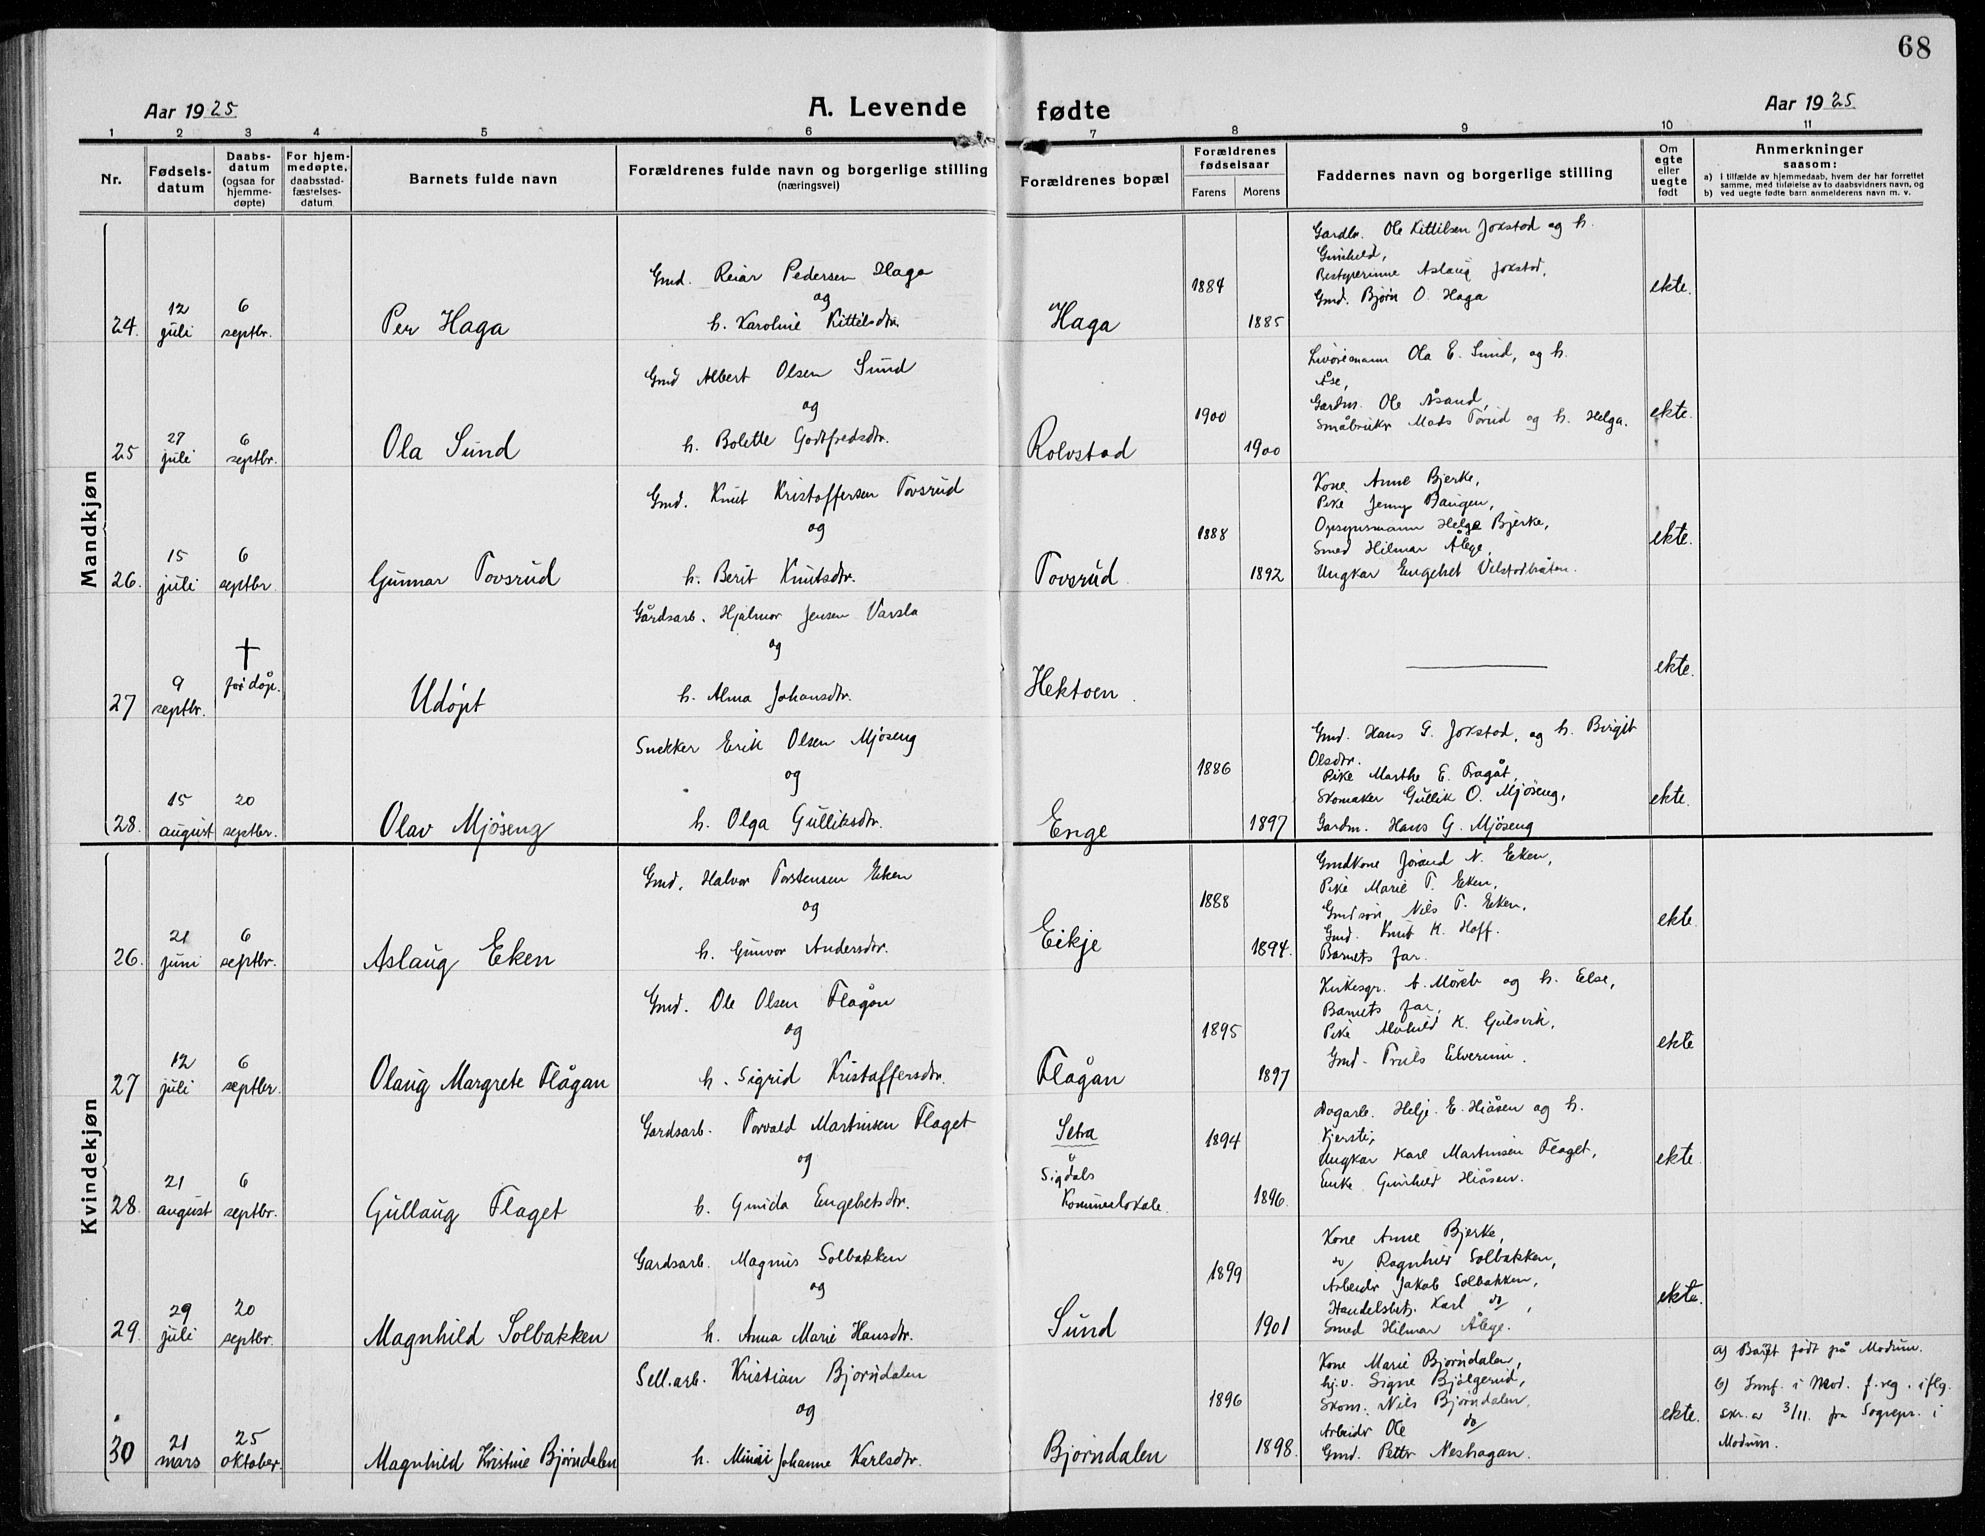 68
Aar 1925
A. Levende fødte
Aar 1925
1 2 3 4 5 6 7 8 9 10 11
Nr.
Fødsels-
datum
Daabs-
datum
(ogsaa for
hjemme-
døpte)
For hjem-
medøpte,
daabsstad-
fæstelses-
datum.
Barnets fulde navn
Forældrenes fulde navn og borgerlige stilling
(næringsvei)
Forældrenes bopæl
Forældrenes
fødselsaar
Farens Morens
Faddernes navn og borgerlige stilling
Om
egte
eller
uegte
født
Anmerkninger
saasom:
a) i tilfælde av hjemmedaab, hvem der har forrettet
samme, med tilføielse av to daabsvidners navn, og
b) ved uegte fødte barn anmelderens navn m. v.
Mandkjøn
24.
12
juli
6
septbr.
Per Haga
Gmd. Reiar Pedersen Haga
og
h. Karoline Kittilsdtr.
Haga
1884
1885
Gardbr. Ole Kittilsen Jokstad og h.
Gunhild,
Bestyrerinne Aslaug Jokstad,
Gmd. Bjørn O. Haga
ekte.
25
27
juli
6
septbr.
Ola Sund
Gmd Albert Olsen Sund
og
h. Bolette Godtfredsdtr.
Rolvstad
1900
1900
Livøremann Ola E. Sund, og h.
Åse,
Gardm. Ole Åsand,
Småbrukr Mads Torud og h. Helga.
ekte.
26.
15
juli
6
septbr.
Gunnar Tovsrud
Gmd. Knut Kristoffersen Tovsrud
og
h. Berit Knutsdtr.
Tovsrud
1888
1892
Kone Anne Bjerke,
Pike Jenny Baugen,
Opsynsmann Helge Bjerke,
Smed Hilmar Ålge,
Ungkar Engebret Velstadbråten.
ekte.
27
9
septbr.
†
før dåp.
Udøpt
Gårdsarb. Hjalmar Jensen Varsla
og
h. Alma Johansdtr.
Hektoen
ekte.
28.
15
august
20
septbr.
Olav Mjøseng
Snekker Erik Olsen Mjøseng
og
h. Olga Gulliksdtr.
Enge
1886
1897
Gmd. Hans G. Jokstad, og h. Birgit
Olsdtr.
Pike Marthe E. Fragåt,
Skomaker Gullik O. Mjøseng,
Gardm. Hans G. Mjøseng
ekte.
Kvindekjøn
26.
21
juni
6
septbr.
Aslaug Eken
Gmd. Halvor Torstensen Eken
og
h. Gunvor Andersdtr.
Eikje
1888
1894.
Gmdkone Jørand N. Eken,
Pike Marie T. Eken,
Gmdsøn Nils T. Eken,
Gmd. Knut K. Hoff.
Barnets far.
ekte.
27
12
juli
6
septbr.
Olaug Margrete Flågan
Gmd. Ole Olsen Flågan
og
h. Sigrid Kristoffersdtr.
Flågan
1895
1897
Kirkesgr. A. Møreb og h. Else,
Barnets far,
Pike Alvhild K. Gulsvik,
Gmd. Truls Elverum.
ekte
28.
21
august
6
septbr.
Gullaug Flaget
Gardsarb. Torvald Martinsen Flaget
og
h. Gunda Engebretsdtr.
Setra
å
Sigdals
Kommunelokale.
1894
1896.
Dagarb. Helje E. Hiåsen og h.
Kjersti,
Ungkar Karl Martinsen Flaget,
Enke Gunhild Hiåsen.
ekte
29.
29
juli
20
septbr.
Magnhild Solbakken
Gardsarb. Magnus Solbakken
og
h. Anna Marie Hansdtr.
Sund
1899
1901
Kone Anne Bjerke,
do Ragnhild Solbakken,
Arbeidr Jakob Solbakken,
Handelsbetj. Karl do,
Smed Hilmar Ålge.
ekte.
30
21
mars
25
oktober.
Magnhild Kristine Bjørndalen
Sell.arb. Kristian Bjørndalen
og
h. Minni Johanne Karlsdtr.
Bjørndalen
1896
1898.
Kone Marie Bjørndalen,
hj.v. Signe Bjølgerud,
Skom. Nils Bjørndalen,
Arbeidr Ole do
Gmd. Petter Neshagan.
ekte.
a) Barnet født på Modum.
b) Innf. i Mod. f.reg. iflg.
skr. av 3/11. fra Sogrepr. i
Modum.